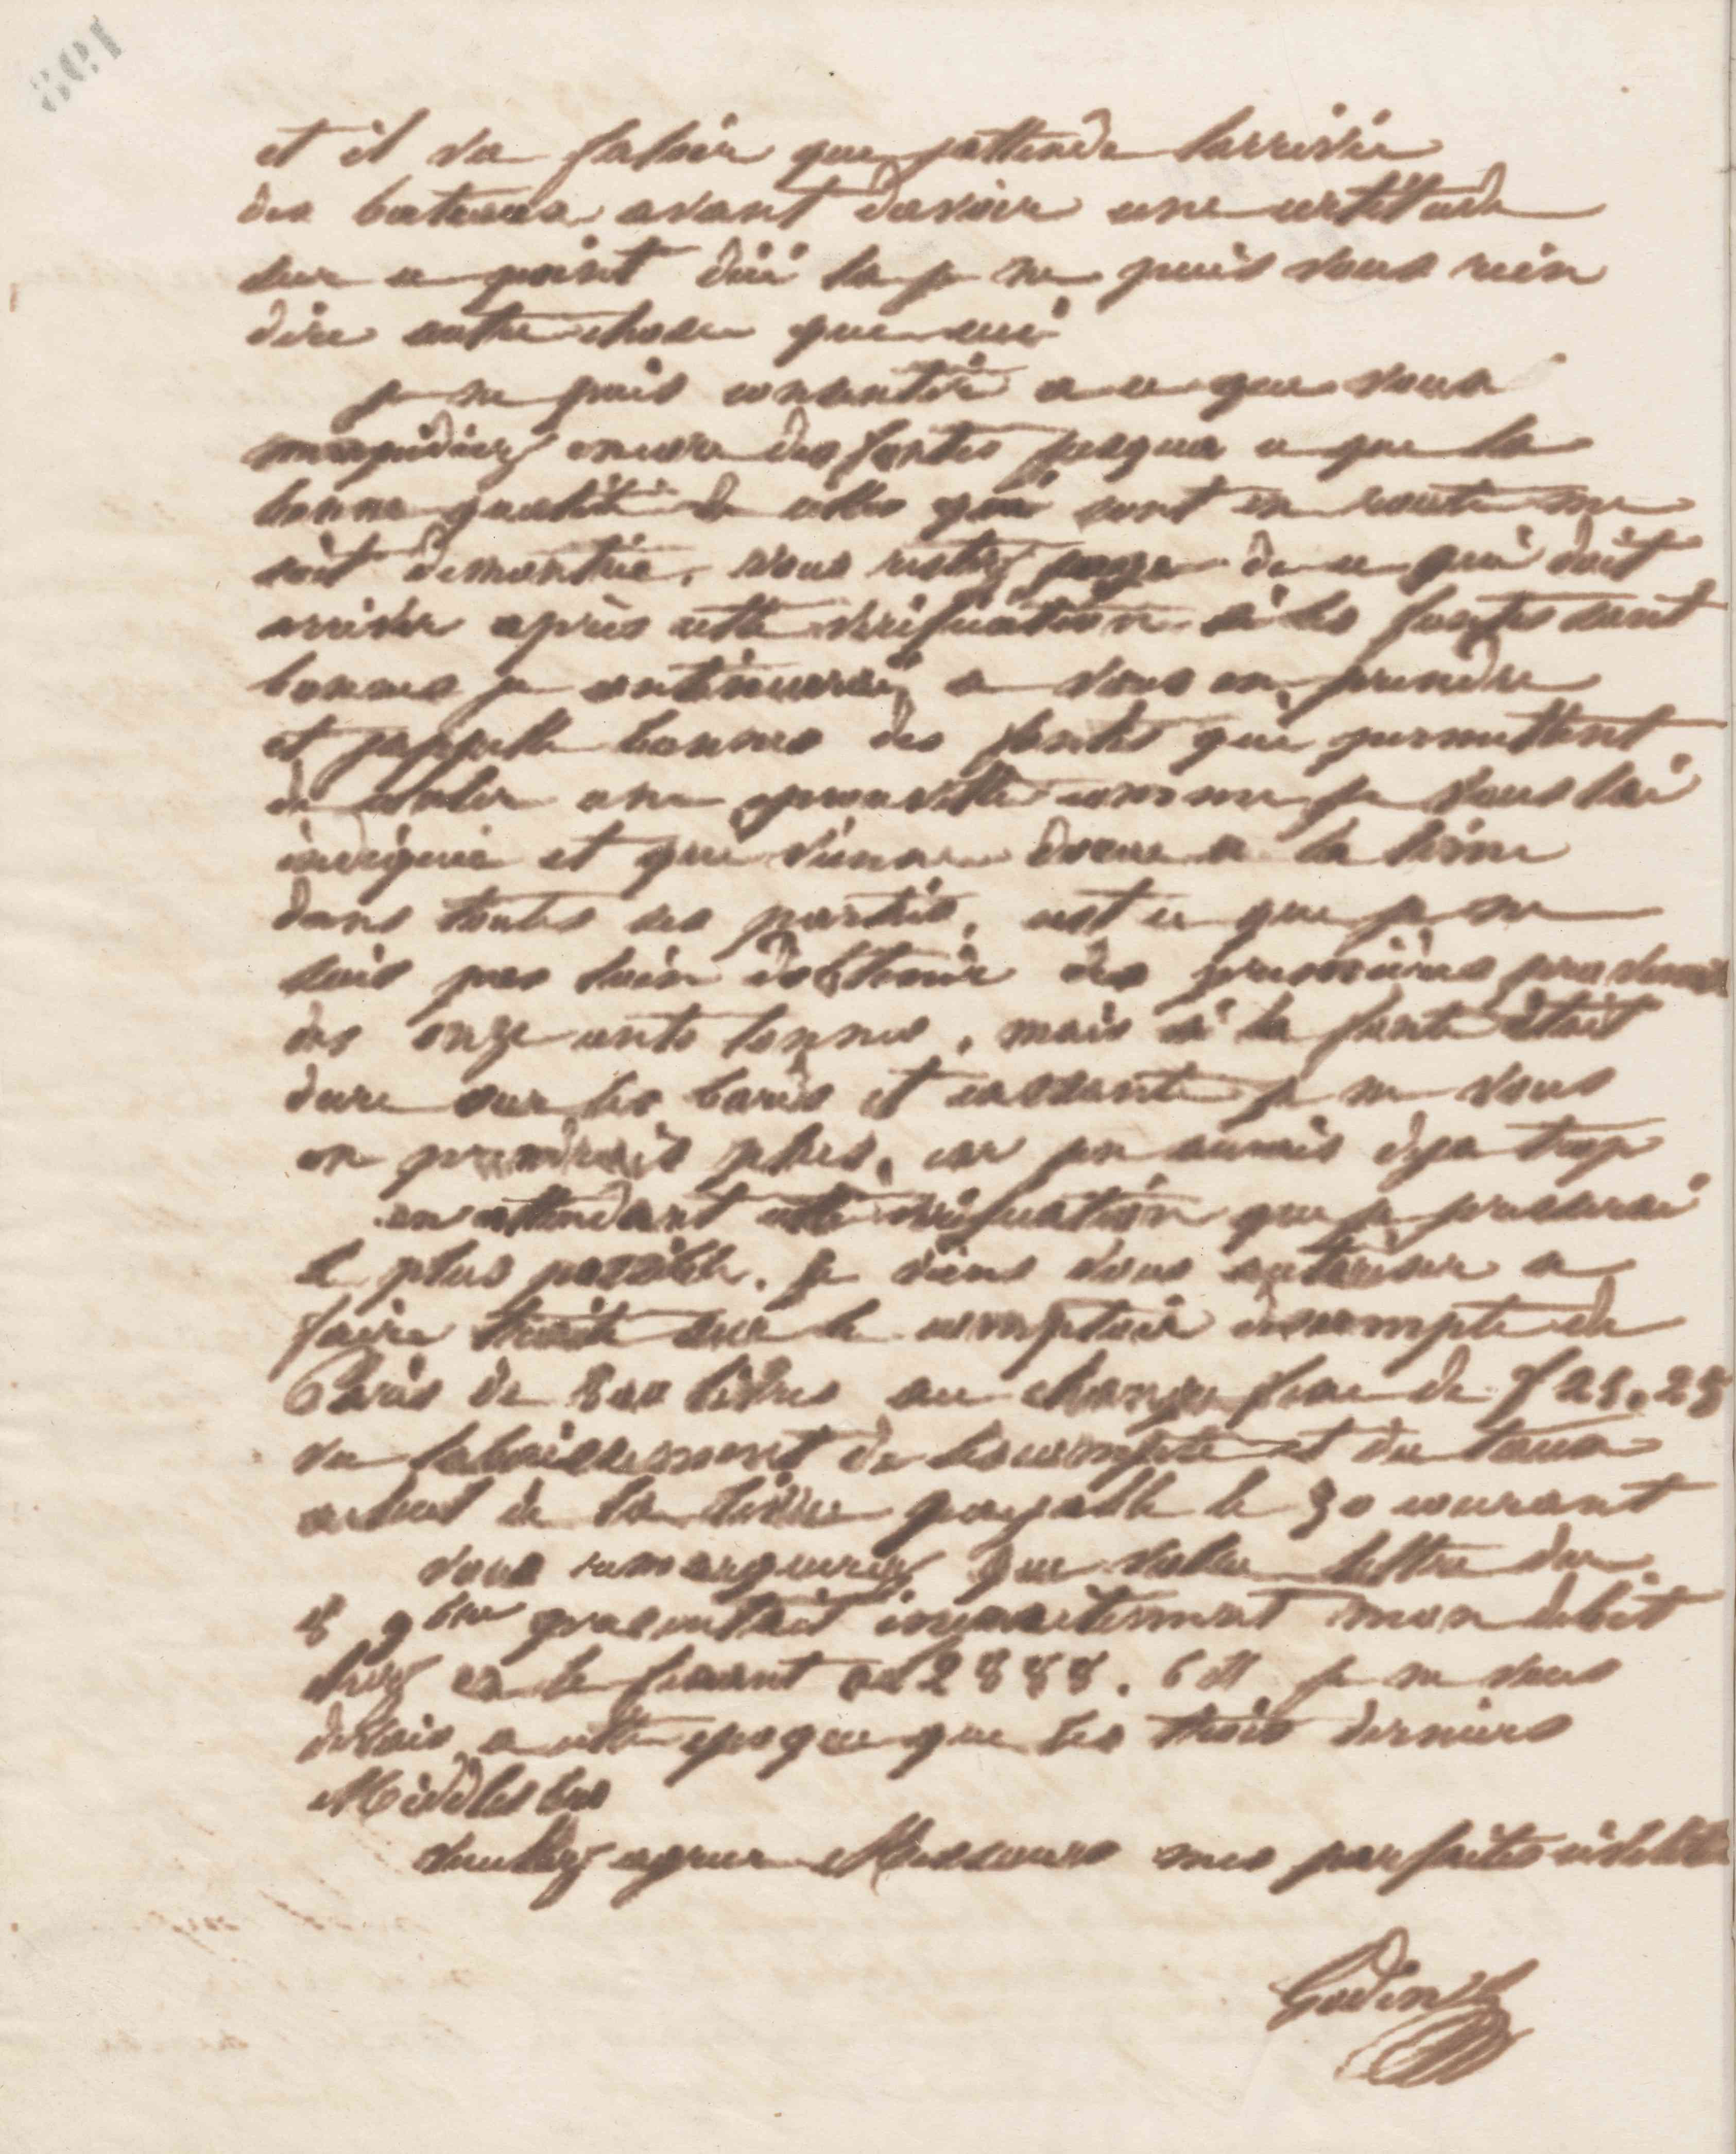 198
et il va faloir que jattende larrivée
des bateaux avant davoir une certitude
sur ce point dici la je ne puis vous rien
dire autre chose que ceci
je ne puis consentir a ce que vous
mexpediez encore des fontes jusqua ce que la
bonne qualité de celles qui sont en route me
soit demontrée. vous restez juge de ce qui doit
arriver après cette vérification si les fontes sont
bonnes je continuerai a vous en prendre
et jappelle bonnes des fontes qui permettent
de couler une eprouvette comme je vous lai
indiquée et qui vienne douce a la lime
dans toutes ses parties, cest ce que je ne
suis pas loin dobtenir des premières
des onze cents tonnes, mais si la fonte était
dure sur les bords et cassante je ne vous
en prendrais plus, car jen aurais deja trop
en attendant cette vérification que je presserai
le plus possible. je viens vous autoriser a
faire traite sur le comptoir descompte de
Paris de 800 livres au change fixe de f 25.25
vu labaissement de lescompte et du taux
actuel de la livre payable le 30 courant
vous remarquerez que votre lettre du
8 9bre presentait inexactement mon debit
chez en le fixant a 2888. 6 11 je ne vous
devais a cette epoque que les trois derniers
Middlesbro
Veuillez agreer Messieurs mes parfaites civilités
Godin